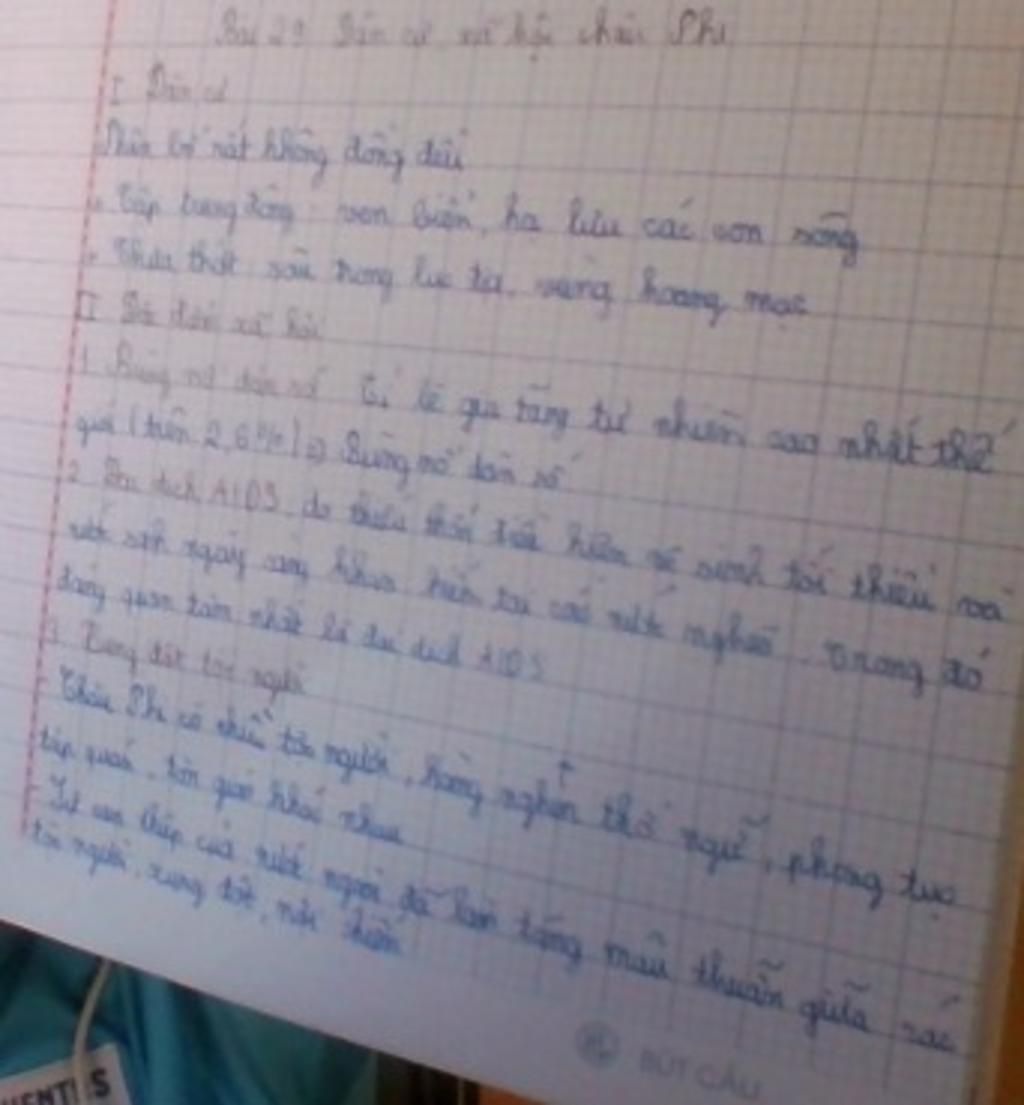 Bài 29 Dân cư xã hội châu Phi
I Dân cư
Phân bố rất không đồng đều
- Tập trung đông: ven biển, hạ lưu các con sông
- Thưa thớt sâu trong lục địa, vùng hoang mạc
II xã hội
1 Bùng nổ dân số Tỉ lệ gia tăng tự nhiên cao nhất thế
giới (trên 2,6%) => Bùng nổ dân số
2 Đại dịch AIDS do thiếu thốn điều kiện vệ sinh tối thiểu và
nước sạch ngày càng khan hiếm tại các nước nghèo. Trong đó
đáng quan tâm nhất là đại dịch AIDS
3 Xung đột tộc người
- Châu Phi có nhiều tộc người, hàng nghìn thổ ngữ, phong tục
tập quán, tôn giáo khác nhau
- Sự can thiệp của nước ngoài đã làm tăng mâu thuẫn giữa các
tộc người, xung đột, nội chiến
BÚT CÂU